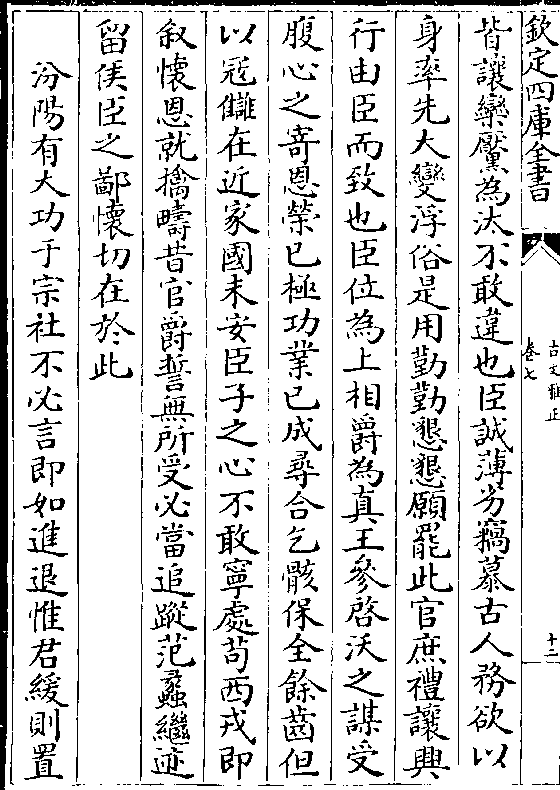 欽定四庫全書
古文雅正
卷七
十二
皆讓欒黶為汰不敢違也臣誠薄劣竊慕古人務欲以
身率先大變浮俗是用勤勤懇懇願罷此官庶禮讓興
行由臣而致也臣位為上相爵為真王參啓沃之謀受
腹心之寄恩榮已極功業已成尋合乞骸保全餘齒但
以冦讎在近家國未安臣子之心不敢寧處苟西戎即
叙懷恩就擒疇昔官爵誓無所受必當追蹤范蠡繼迹
留侯臣之鄙懷切在於此
汾陽有大功于宗社不必言即如進退惟君緩則置